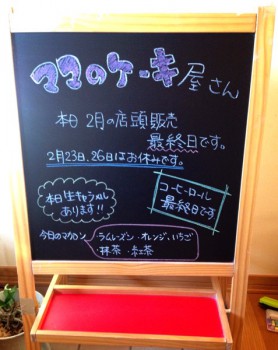 ママのケーキ屋さん
本日 2月の店頭販売
最終日です。
2月23日、26日はお休みです。
本日生キャラメル
あります!!
コーヒーロール
最終日です
今日のマカロン
ラムレーズン・オレンジ・いちご
・抹茶・紅茶